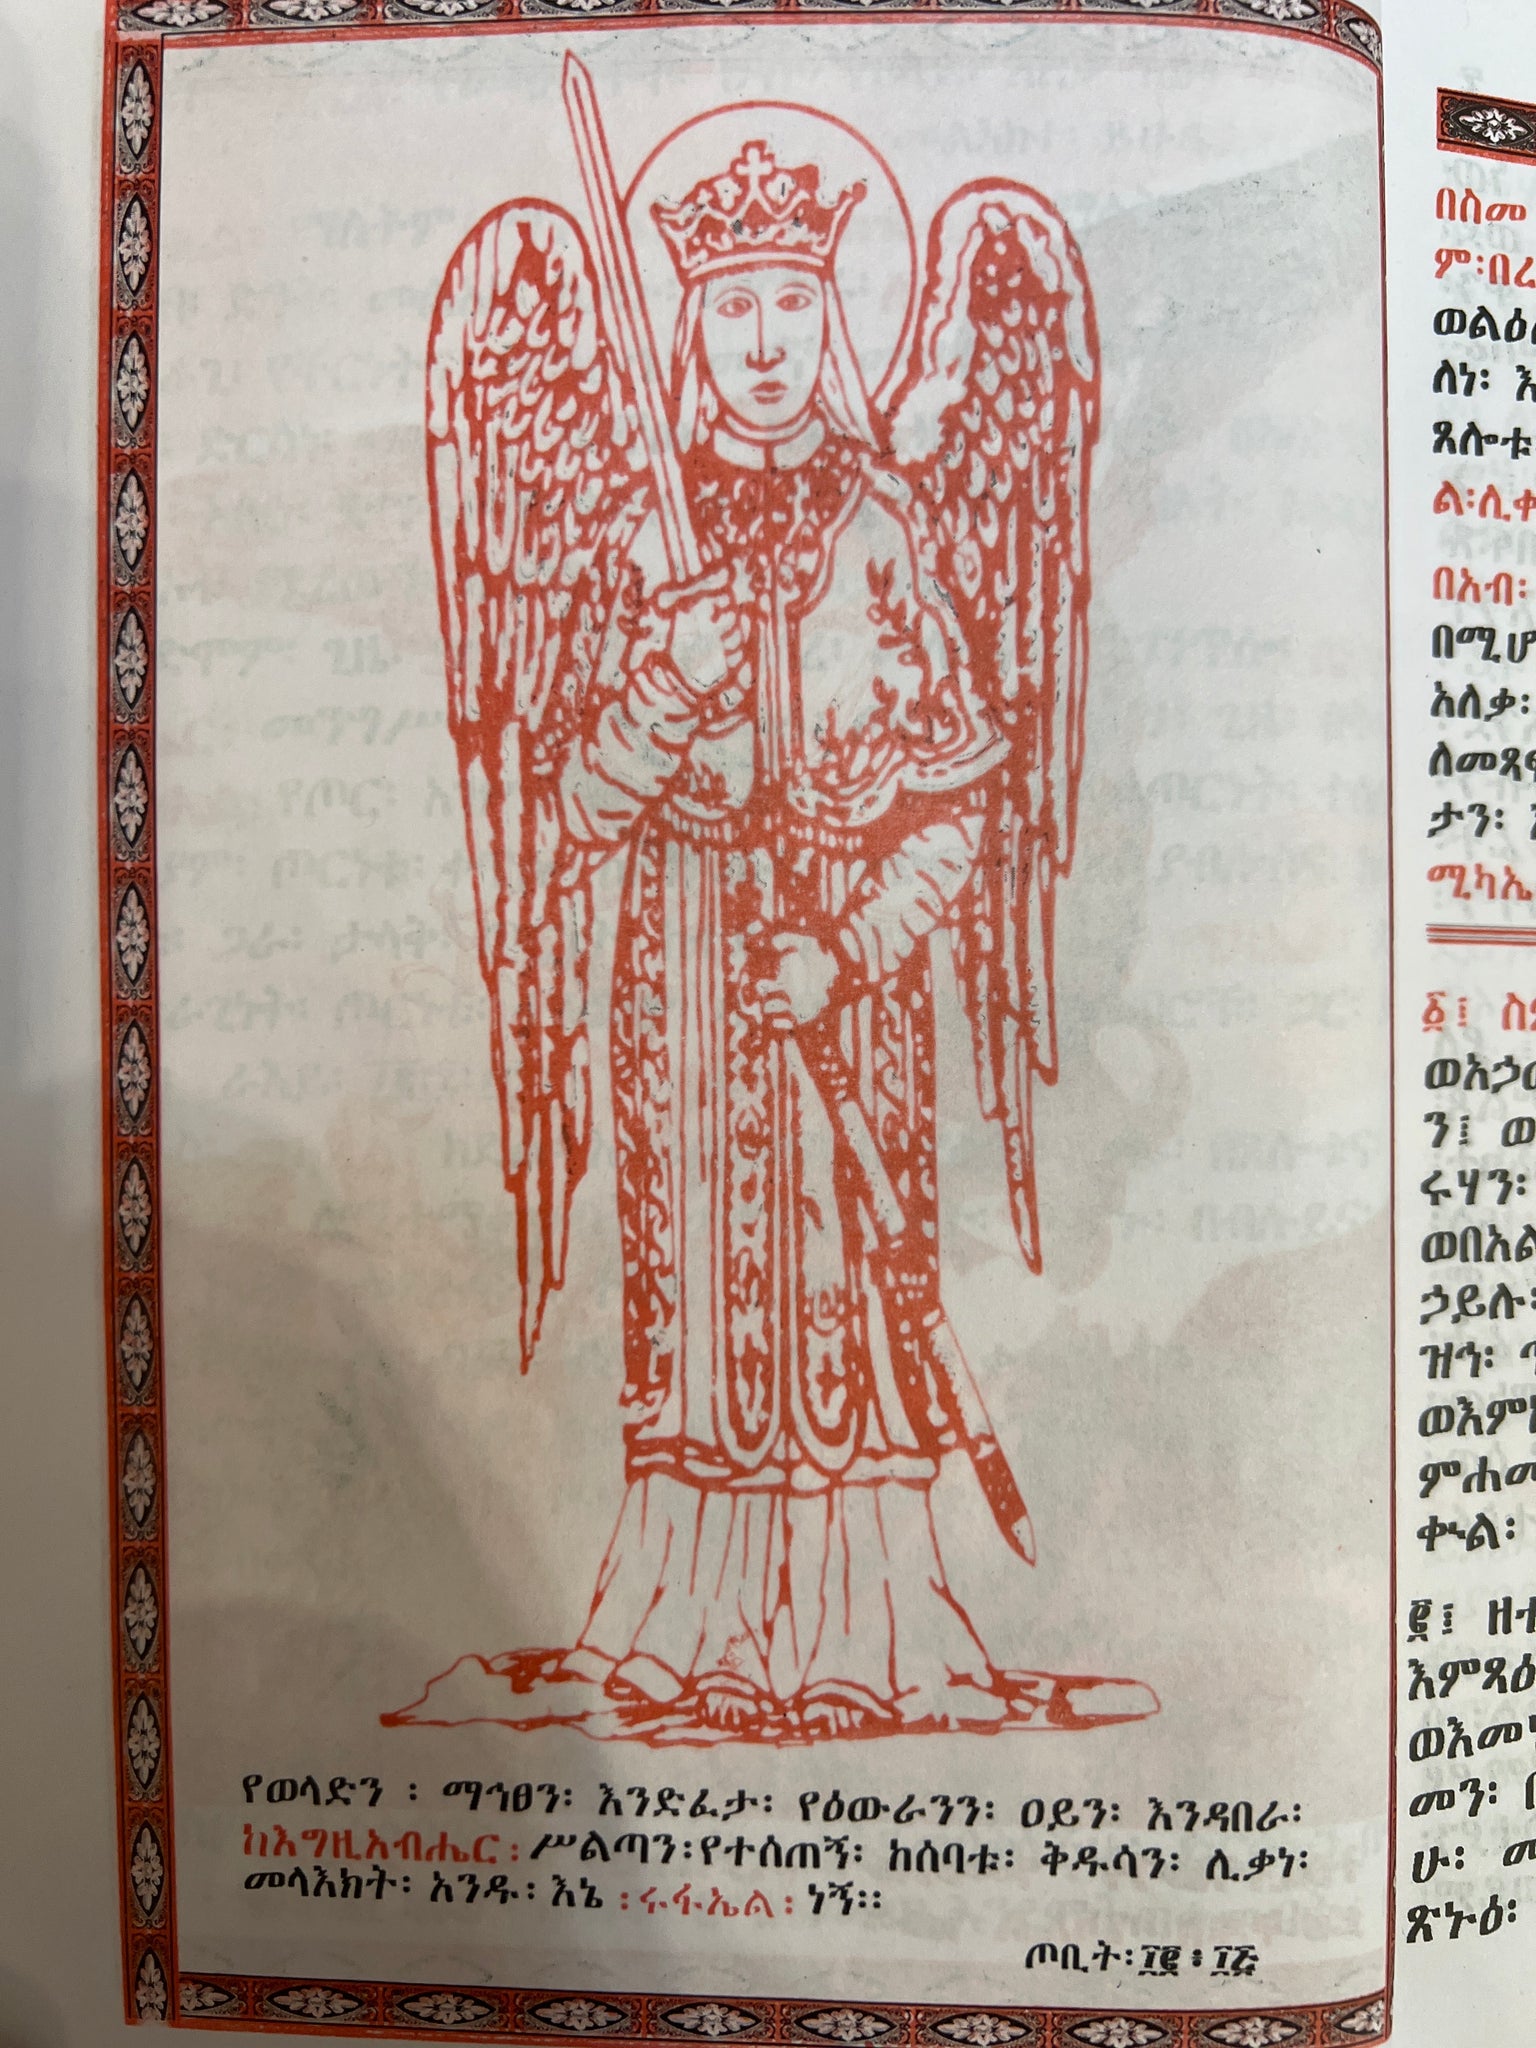 የወላድን ፡ ማኅፀን፡ እንድፈታ፡ የዕውራንን፡ ዐይን፡ እንዳበራ፡
ከእግዚአብሔር፡ ሥልጣን፡የተሰጠኝ፡ ከሰባቱ፡ ቅዱሳን፡ ሊቃነ፡
መላእክት፡ አንዱ፡ እኔ ፡ሩፋኤል፡ ነኝ።
ጦቢት፡፲፪፥፲፭
በስመ
ም፡በረ
ለነ፡
ጸሎቱ
ል፡ሊቀ
በአብ፡
በሚሆ
አለቃ፡
ለመጻ
ታን፡
ሚካኤ
፩፤
ን፤ ወ
ሩሃን፡
ወበአል
ኃይሉ፡
ዝኅ፡
ወእም
ምሐመ
ቀጕል፡
፪፤ ዘተ
እምጻዕ
ወእመ
መን፡
ሁ፡
ጽኑዕ፡